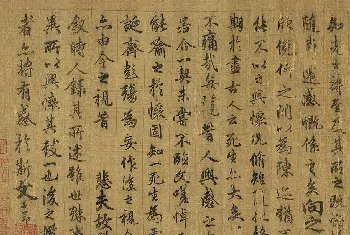 知老之將至及其所之既
隨事遷感慨係之矣向之
欣俛仰之閒以為陳迹猶
能不以之興懷況脩短隨化
期於盡古人云死生亦大矣
不痛哉每攬昔人興感之
若合一契未嘗不臨文嗟悼
能喻之於懷固知一死生為
誕齊彭殤為妄作後之視
亦由今之視昔 悲夫故
敘時人錄其所述雖世殊
異所以興懷其致一也後之
者亦將有感於斯文